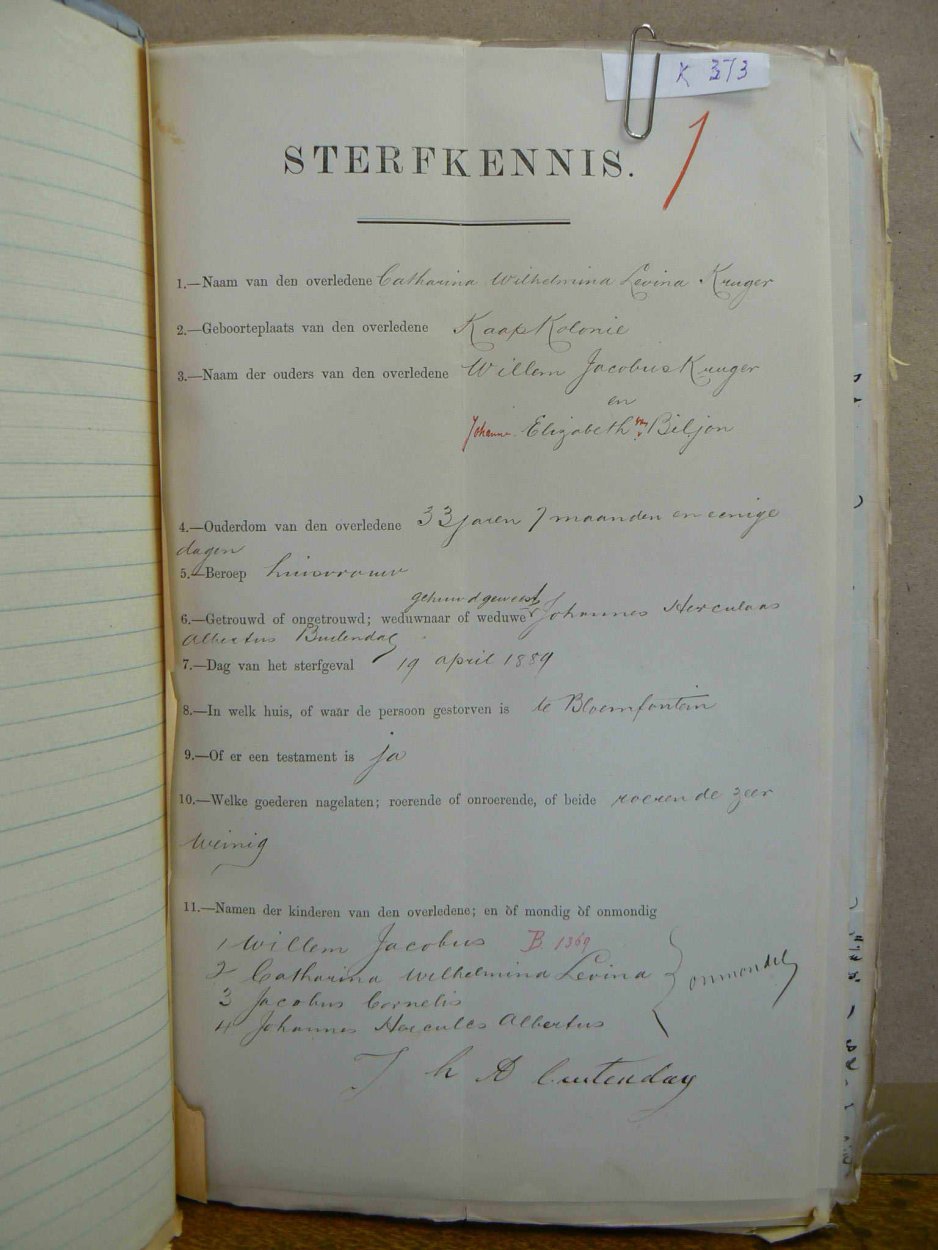 K 373
STERFKENNIS.
1.—Naam van den overledene Catharina Wilhelmina Levina Kruger
2.—Geboorteplaats van den overledene Kaap Kolonie
3.—Naam der ouders van den overledene Willem Jacobus Kruger
en
Johanna Elizabeth v. Biljon
4.—Ouderdom van den overledene 33 jaren 7 maanden en eenige
dagen
5.—Beroep huisvrouw
gehuwd geweest
6.—Getrouwd of ongetrouwd; weduwnaar of weduwe Johannes Herculaas
Albertus Buitendag
7.—Dag van het sterfgeval 19 april 1889
8.—In welk huis, of waar de persoon gestorven is te Bloemfontein
9.—Of er een testament is ja
10.—Welke goederen nagelaten; roerende of onroerende, of beide roerende zeer
weinig
11.—Namen der kinderen van den overledene; en òf mondig òf onmondig
1 Willem Jacobus B. 1369
2 Catharina Wilhelmina Levina
onmondig
3 Jacobus Cornelis
4 Johannes Hercules Albertus
J h A Buitendag